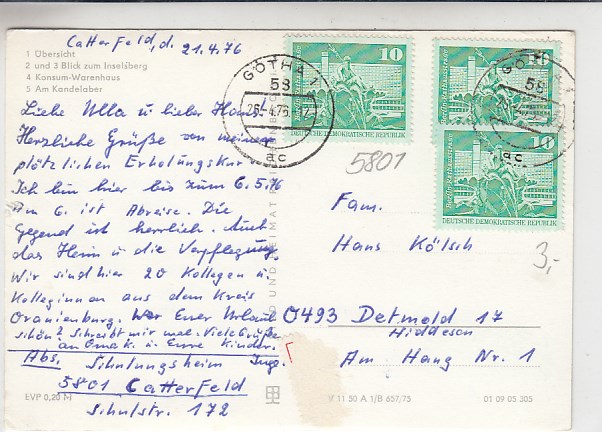 Catterfeld, d. 21.4.76
1 Übersicht
2 und 3 Blick zum Inselsberg
4 Konsum-Warenhaus
5 Am Kandelaber
Liebe Ulla u lieber Hans
Herzliche Grüße von meiner
plötzlichen Erholungskur
Ich bin hier bis zum 6.5.76
am 6. ist Abreise. Die
Gegend ist herrlich. Auch
das Heim u die Verpflegung
Wir sind hier 20 Kollegen u.
Kolleginnen aus dem Kreis
Oranienburg. War Euer Urlaub
schön? Schreibt mir mal. Viele Grüße
an Oma K. u Eure Kinder.
Abs. Schulungsheim Jug.
5801 Catterfeld
Schulstr. 172
EVP 0,20 M
GOTHA 1
58
ac
10
DEUTSCHE DEMOKRATISCHE REPUBLIK
GOTHA 1
58
ac
10
10
DEUTSCHE DEMOKRATISCHE REPUBLIK
5801
Fam.
Hans Kölsch
3,-
0493 Detmold 17
Hiddesen
Am Hang Nr. 1
V 11 50 A 1/B 657/75
01 09 05 305